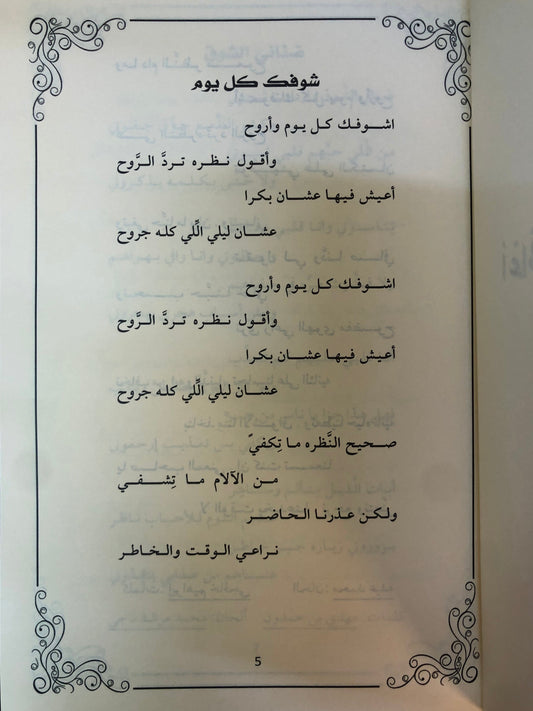 شوفك كل يوم
اشــوفــك كــل يــوم وأروح
وأقـول نـظـره تـردَّ الـرَّوح
أعـيش فـيـهـا عـشـان بـكـرا
عـشـان ليلي الِّلي كله جروح
اشــوفــك كــل يــوم وأروح
وأقـول نـظـره تـردَّ الـرَّوح
أعـيش فـيـهـا عـشـان بـكـرا
عـشـان ليلي الِّلي كله جروح
صـحـيـح النَّـظـره مـا تِـكـفـيّ
مــن الآلام مــا تِــشــفــي
ولـكـن عـذرنـا الـحـاضـر
نـراعـي الـوقـت والـخـاطـر
5